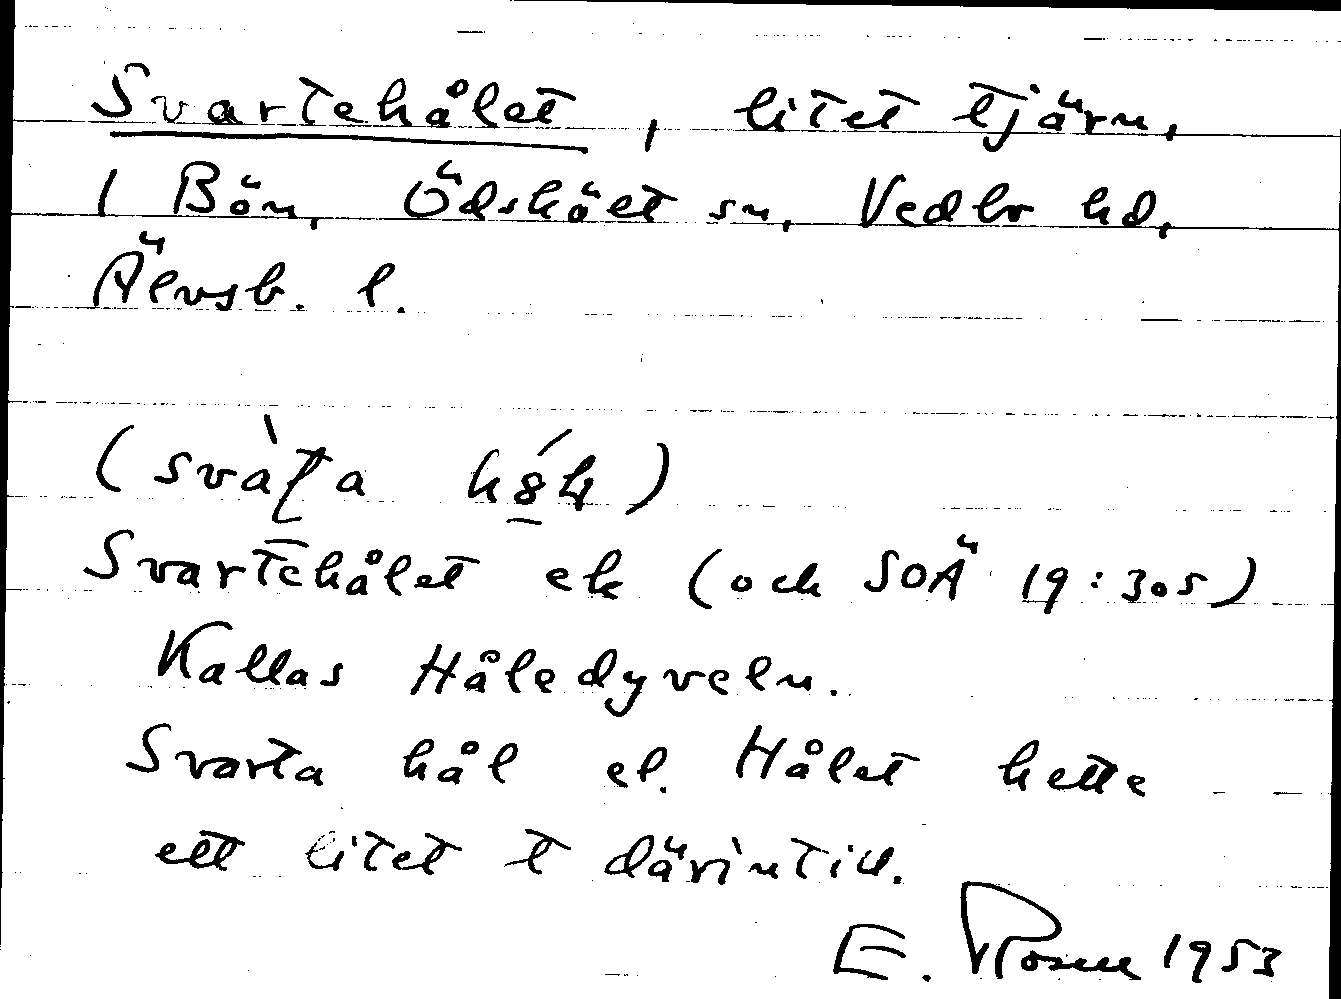 Svartehålet, litet tjärn,
1 Bön, Ödsköet sn, Vedbo hd,
Älvsb. l.
Svartehålet ek (och SOÄ 19:305)
Kallas Håledyveln.
Svarta hål el. Hålet hette
ett litet t därintill.
E. Rosell 1953